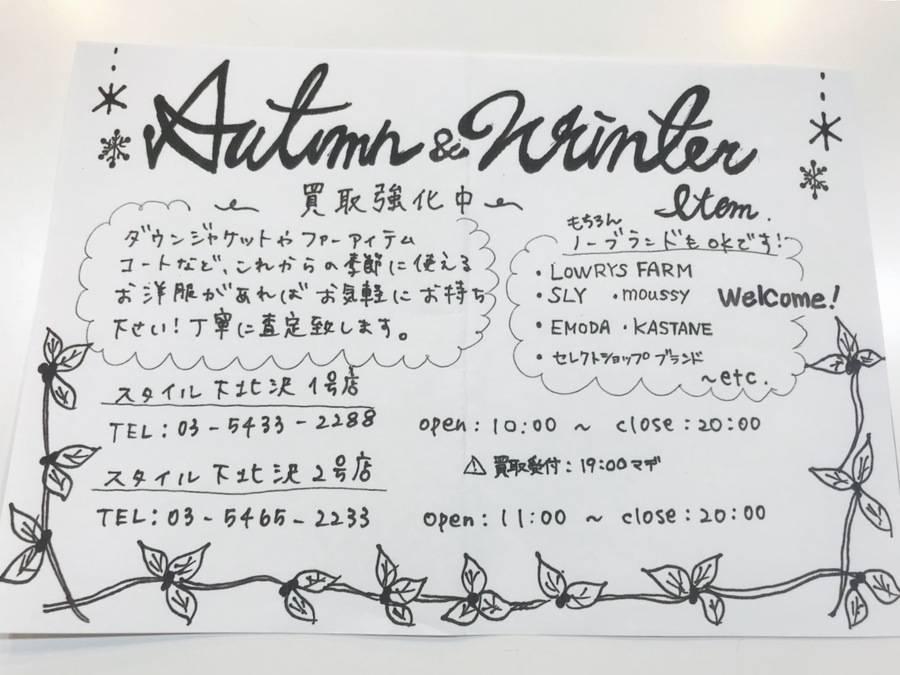 Autumn & Winter
Item.
買取強化中
ダウンジャケットやファーアイテム
コートなど、これからの季節に使える
お洋服があればお気軽にお持ち
下せい!丁寧に査定致します。
もちろん
ノーブランドもOKです!
・LOWRYS FARM
・SLY ・moussy
Welcome!
・EMODA ・KASTANE
・セレクトショップブランド
~etc.
スタイル下北沢1号店
TEL:03-5433-2288
open:10:00 ~ close:20:00
⚠買取受付:19:00マデ
スタイル下北沢2号店
TEL:03-5465-2233
open:11:00 ~ close:20:00